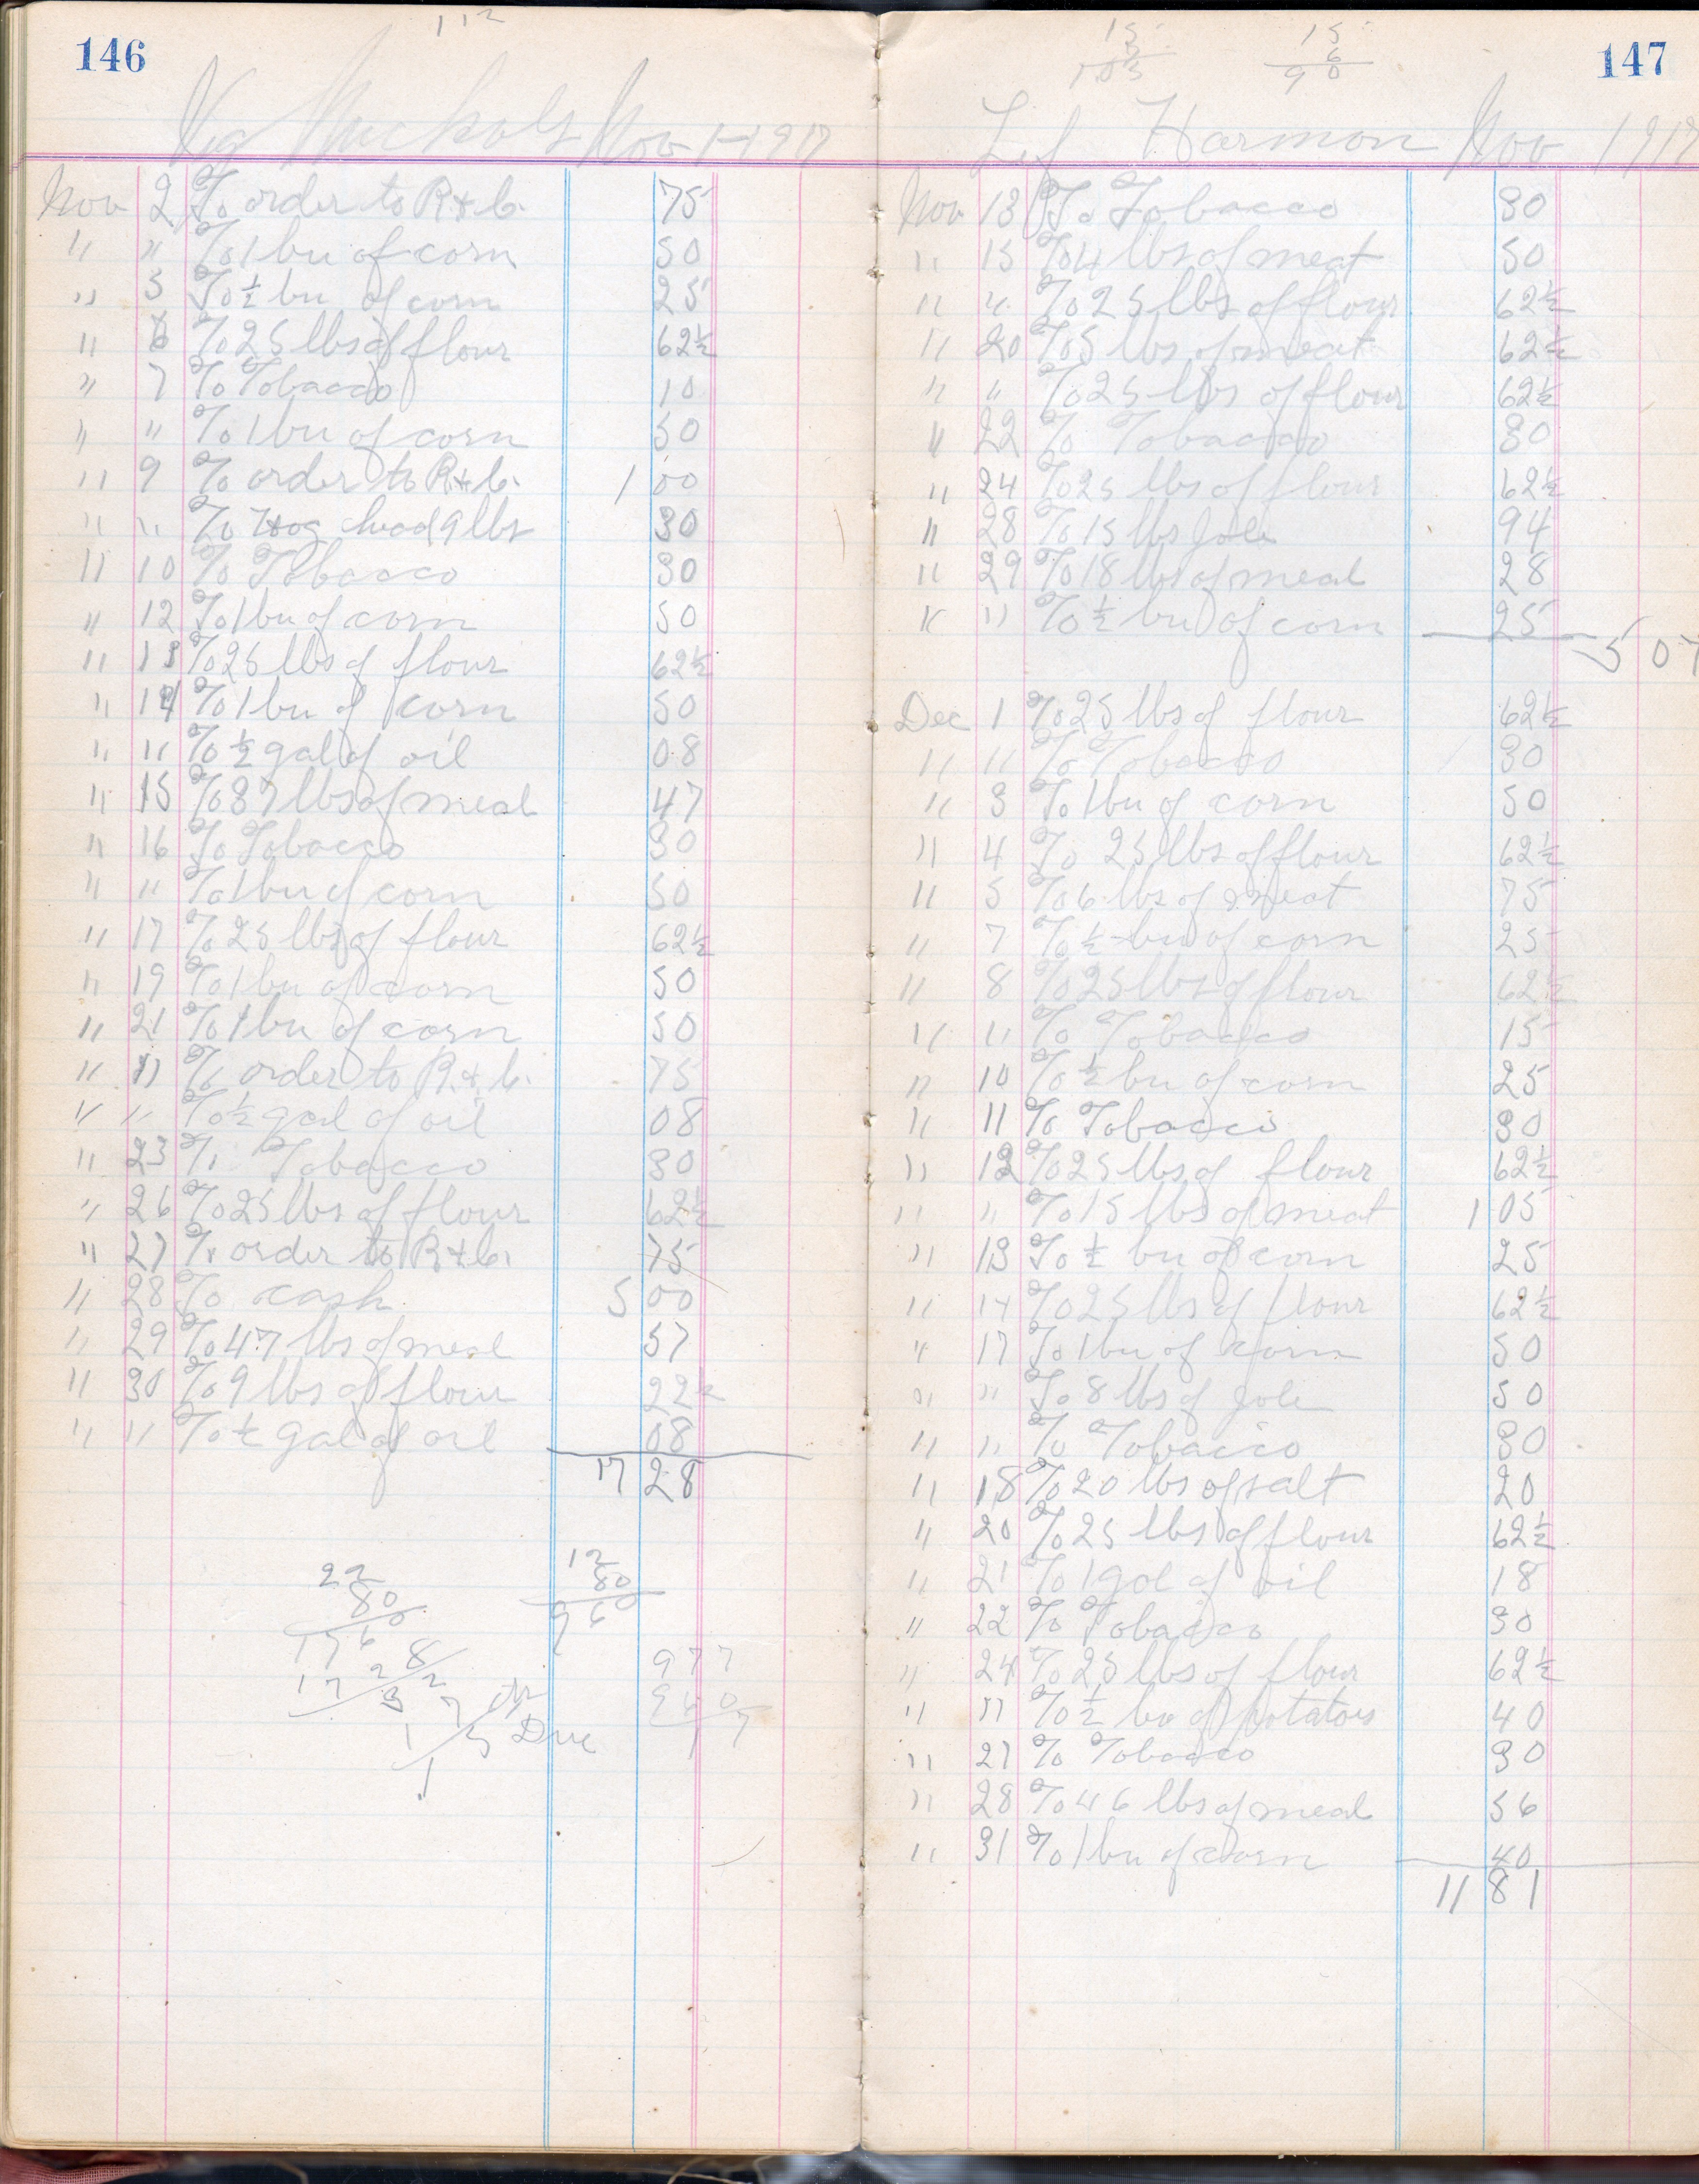 146
112
Nichols Nov 1-1917
Nov 2 To order to R + C. 75
" " To 1 bu of corn 50
" 5 To ½ bu of corn 25
" 6 To 25 lbs of flour 62½
" 7 To Tobacco 10
" " To 1 bu of corn 50
" 9 To order to R + C. 1 00
" " To Hog head 9 lbs 30
" 10 To Tobacco 30
" 12 To 1 bu of corn 50
" 13 To 25 lbs of flour 62½
" 14 To 1 bu of corn 50
" " To ½ gal of oil 08
" 15 To 37 lbs of meal 47
" 16 To Tobacco 30
" " To 1 bu of corn 50
" 17 To 25 lbs of flour 62½
" 19 To 1 bu of corn 50
" 21 To 1 bu of corn 50
" " To order to R + C. 75
" " To ½ gal of oil 08
" 23 To Tobacco 30
" 26 To 25 lbs of flour 62½
" 27 To order to R + C. 75
" 28 To cash 5 00
" 29 To 47 lbs of meal 57
" 30 To 9 lbs of flour 22½
" " To ½ gal of oil 08
17 28
22
80
17 60
17 28
32
7
1 5 Due
1
12
80
9 60
977
960
17
147
15
15
6
90
Harmon Nov 1917
Nov 13 To Tobacco 30
" 15 To 4 lbs of meat 50
" " To 25 lbs of flour 62½
" 20 To 5 lbs of meat 62½
" " To 25 lbs of flour 62½
" 22 To Tobacco 30
" 24 To 25 lbs of flour 62½
" 28 To 15 lbs Jole 94
" 29 To 18 lbs of meal 28
" " To ½ bu of corn 25
5 07
Dec 1 To 25 lbs of flour 62½
" " To Tobacco 30
" 3 To 1 bu of corn 50
" 4 To 25 lbs of flour 62½
" 5 To 6 lbs of meat 75
" 7 To ½ bu of corn 25
" 8 To 25 lbs of flour 62½
" " To Tobacco 15
" 10 To ½ bu of corn 25
" 11 To Tobacco 30
" 12 To 25 lbs of flour 62½
" " To 15 lbs of meat 1 05
" 13 To ½ bu of corn 25
" 14 To 25 lbs of flour 62½
" 17 To 1 bu of corn 50
" " To 8 lbs of Jole 50
" " To Tobacco 30
" 18 To 20 lbs of salt 20
" 20 To 25 lbs of flour 62½
" 21 To 1 gal of oil 18
" 22 To Tobacco 30
" 24 To 25 lbs of flour 62½
" " To ½ bu of potatoes 40
" 27 To Tobacco 30
" 28 To 46 lbs of meal 56
" 31 To 1 bu of corn 40
11 81